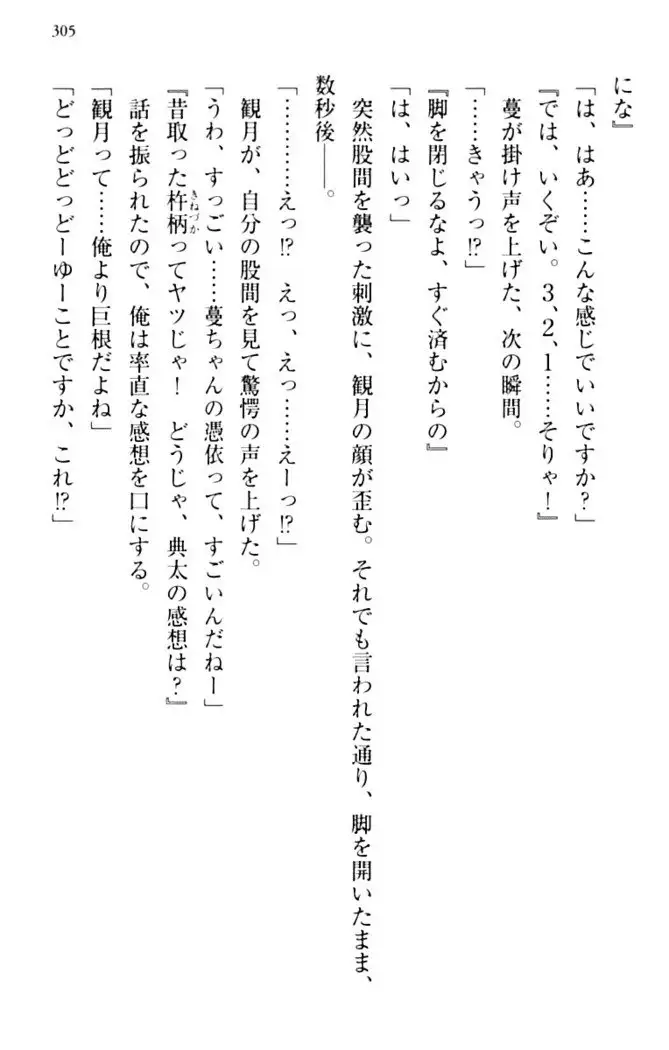 305
にな』
「は、はあ……こんな感じでいいですか？」
『では、いくぞい。３、２、１……そりゃ！』
蔓が掛け声を上げた、次の瞬間。
「……きゃうっ⁉」
『脚を閉じるなよ、すぐ済むからの』
「は、はいっ」
突然股間を襲った刺激に、観月の顔が歪む。それでも言われた通り、脚を開いたまま、
数秒後――。
「…………えっ⁉　えっ、えっ……えーっ⁉」
観月が、自分の股間を見て驚愕の声を上げた。
「うわ、すっごい……蔓ちゃんの憑依って、すごいんだねー」
『昔取った杵柄きねづかってヤツじゃ！　どうじゃ、典太の感想は？』
話を振られたので、俺は率直な感想を口にする。
「観月って……俺より巨根だよね」
「どっどどっどーゆーことですか、これ⁉」